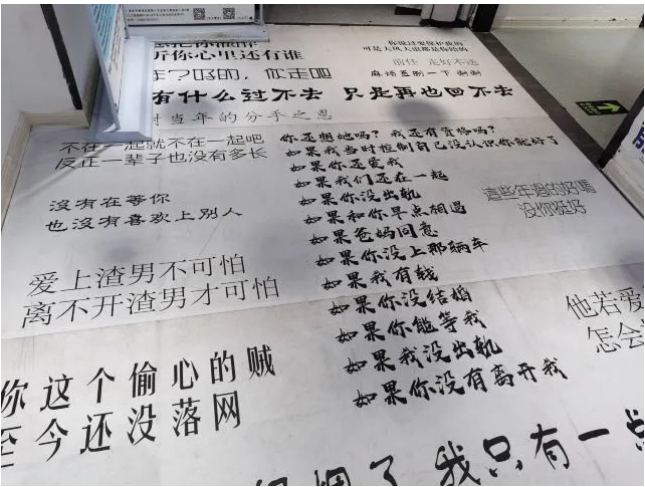 听你心里还有谁
有什么过不去 只是再也回不去
当年的分手之恩
你说过要保护我的
可是大风大浪都是你给的
前任 走好不送
麻烦盖翻一下 谢谢
不在一起就不在一起吧
反正一辈子也没有多长
你还想她吗？我还有资格吗？
如果我当时控制自己没认识你就好了
如果你还爱我
如果我们还在一起
如果你没出轨
如果和你早点相遇
如果爸妈同意
如果你没上那辆车
如果我有钱
如果你没结婚
如果你能等我
如果我没出轨
如果你没有离开我
沒有在等你
也沒有喜欢上別人
這些年過的好嗎
没你挺好
爱上渣男不可怕
离不开渣男才可怕
他若爱
怎会
你这个偷心的贼
至今还没落网
了 我只有一点